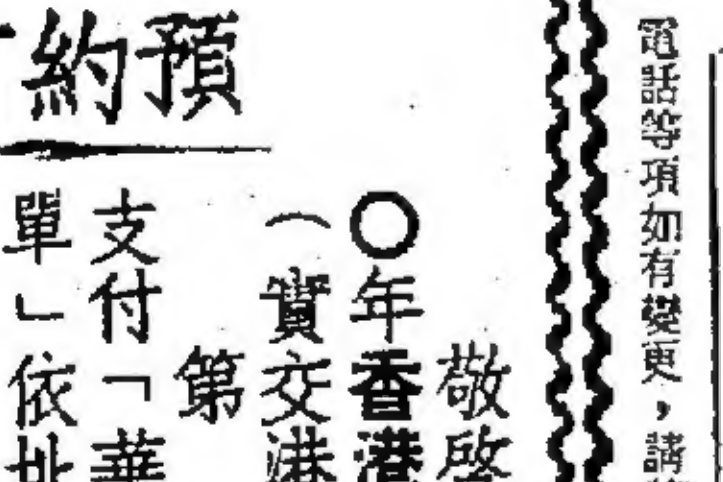 電話等項如有變更，請
預約
敬啓
〇年香港
（實交港
第
支付「華
單」依址